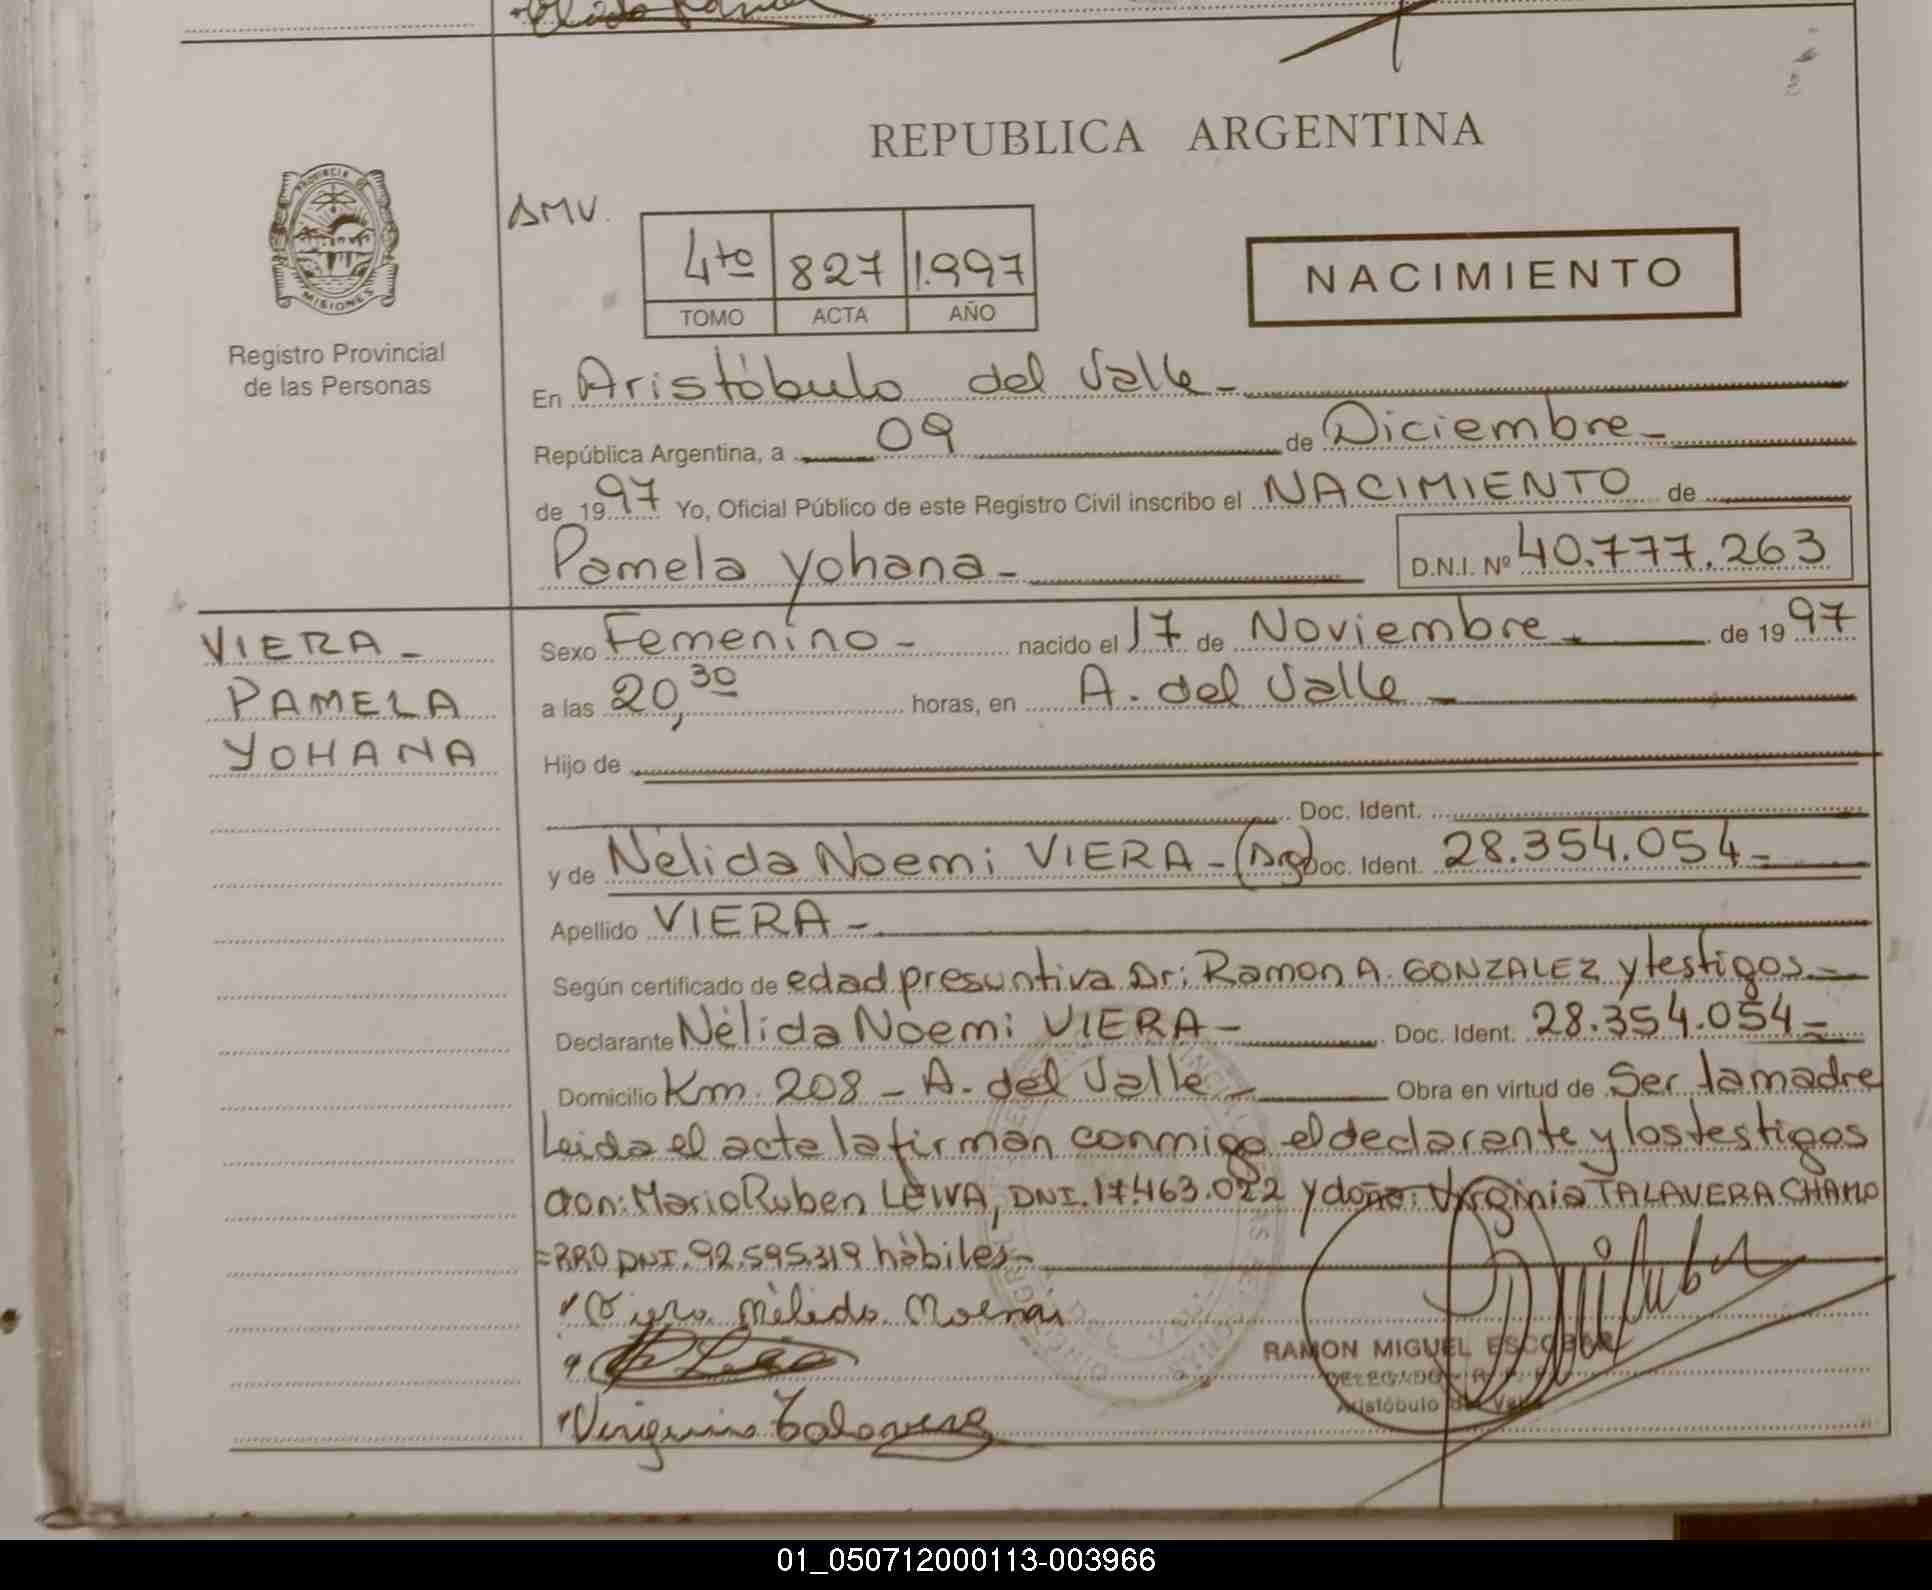 REPUBLICA ARGENTINA
PROVINCIA DE
MISIONES
Registro Provincial
de las Personas
AMV.
4to 827 1.997
TOMO ACTA AÑO
NACIMIENTO
En Aristóbulo del Valle -
República Argentina, a 09 de Diciembre -
de 1997 Yo, Oficial Público de este Registro Civil inscribo el NACIMIENTO de
Pamela Yohana - D.N.I. Nº 40.777.263
VIERA -
PAMELA
YOHANA
Sexo Femenino - nacido el 17 de Noviembre - de 1997
a las 20,30 horas, en A. del Valle -
Hijo de
Doc. Ident.
y de Nélida Noemi VIERA - (Arg) Doc. Ident. 28.354.054 -
Apellido VIERA -
Según certificado de edad presuntiva Dr: Ramon A. GONZALEZ y testigos -
Declarante Nélida Noemi VIERA - Doc. Ident. 28.354.054 =
Domicilio Km. 208 - A. del Valle - Obra en virtud de Ser la madre
Leida el acta la firman conmigo el declarante y los testigos
don: Mario Ruben LEIVA, DNI. 17.463.022 y doña: Virginia TALAVERA CHAMO
=RRO DNI. 92.595.319 hábiles -
RAMON MIGUEL ESCOBAR
DELEGADO - R. P. P.
Aristóbulo del Valle
Virginia Talavera
01_050712000113-003966